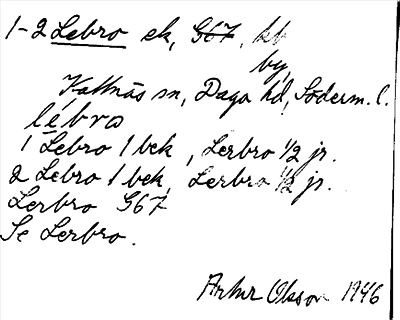 1-2 Lebro ek, G67, kb
by,
Kattnäs sn, Daga hd, Söderm. l.
lébro
1 Lebro 1 bek, Lerbro 1/2 jr.
2 Lebro 1 bek, Lerbro 1/2 jr.
Lerbro G67
Se Lerbro.
Artur Olsson 1946